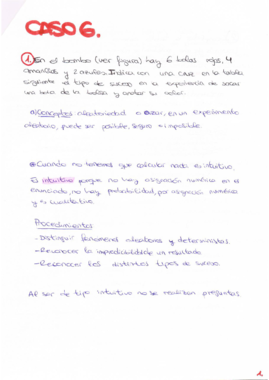 CASO 6.
① En el bombo (ver figura) hay 6 bolas rojas, 4
amarillas y 2 azules. Indica con una cruz en la tabla
siguiente el tipo de suceso en la experiencia de sacar
una bola de la bolsa y anotar su color.
a) Conceptos aleatoriedad o azar, en un experimento
aleatorio, puede ser posible, seguro e imposible.
Cuando no tenemos que calcular nada es intuitivo.
Es intuitivo porque no hay asignación numérica en el
enunciado, no hay probabilidad, por asignación numérica
y es cualitativa.
Procedimientos
- Distinguir fenómenos aleatorios y deterministas.
- Reconocer la impredecibilidad de un resultado
- Reconocer los distintos tipos de suceso.
Al ser de tipo intuitivo no se realizan preguntas.
1.